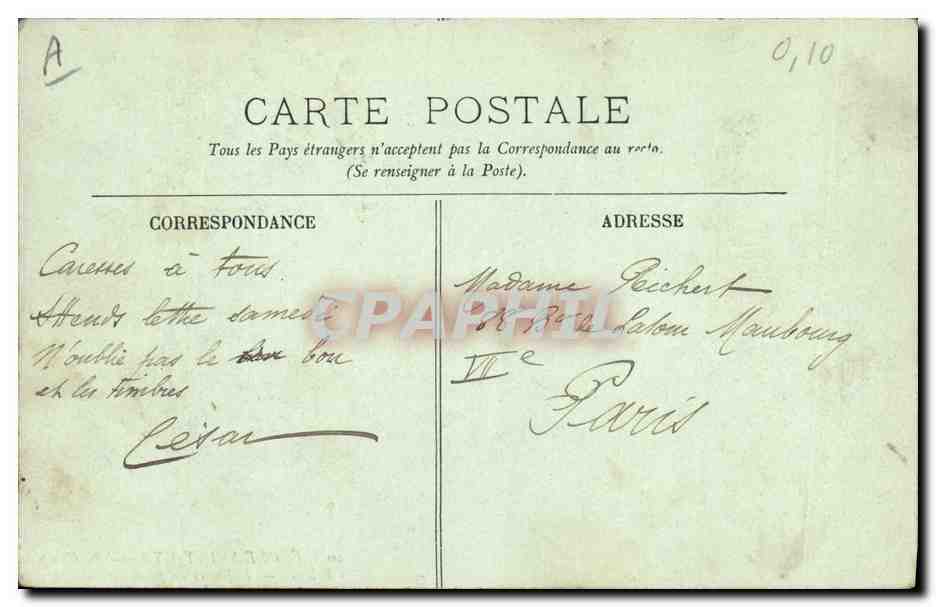 A
0,10
CARTE POSTALE
Tous les Pays étrangers n'acceptent pas la Correspondance au recto.
(Se renseigner à la Poste).
CORRESPONDANCE
Caresses à tous.
Attends lettre samedi
N'oublie pas le bon
et les timbres
César
ADRESSE
Madame Reichert
Bd de Latour Maubourg
VIIe
Paris
CPAPHIL